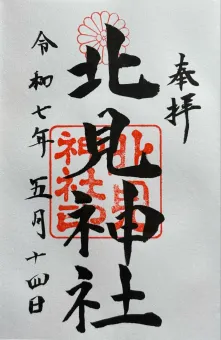 奉拝
北見神社
北見
神社印
令和七年 五月十四日